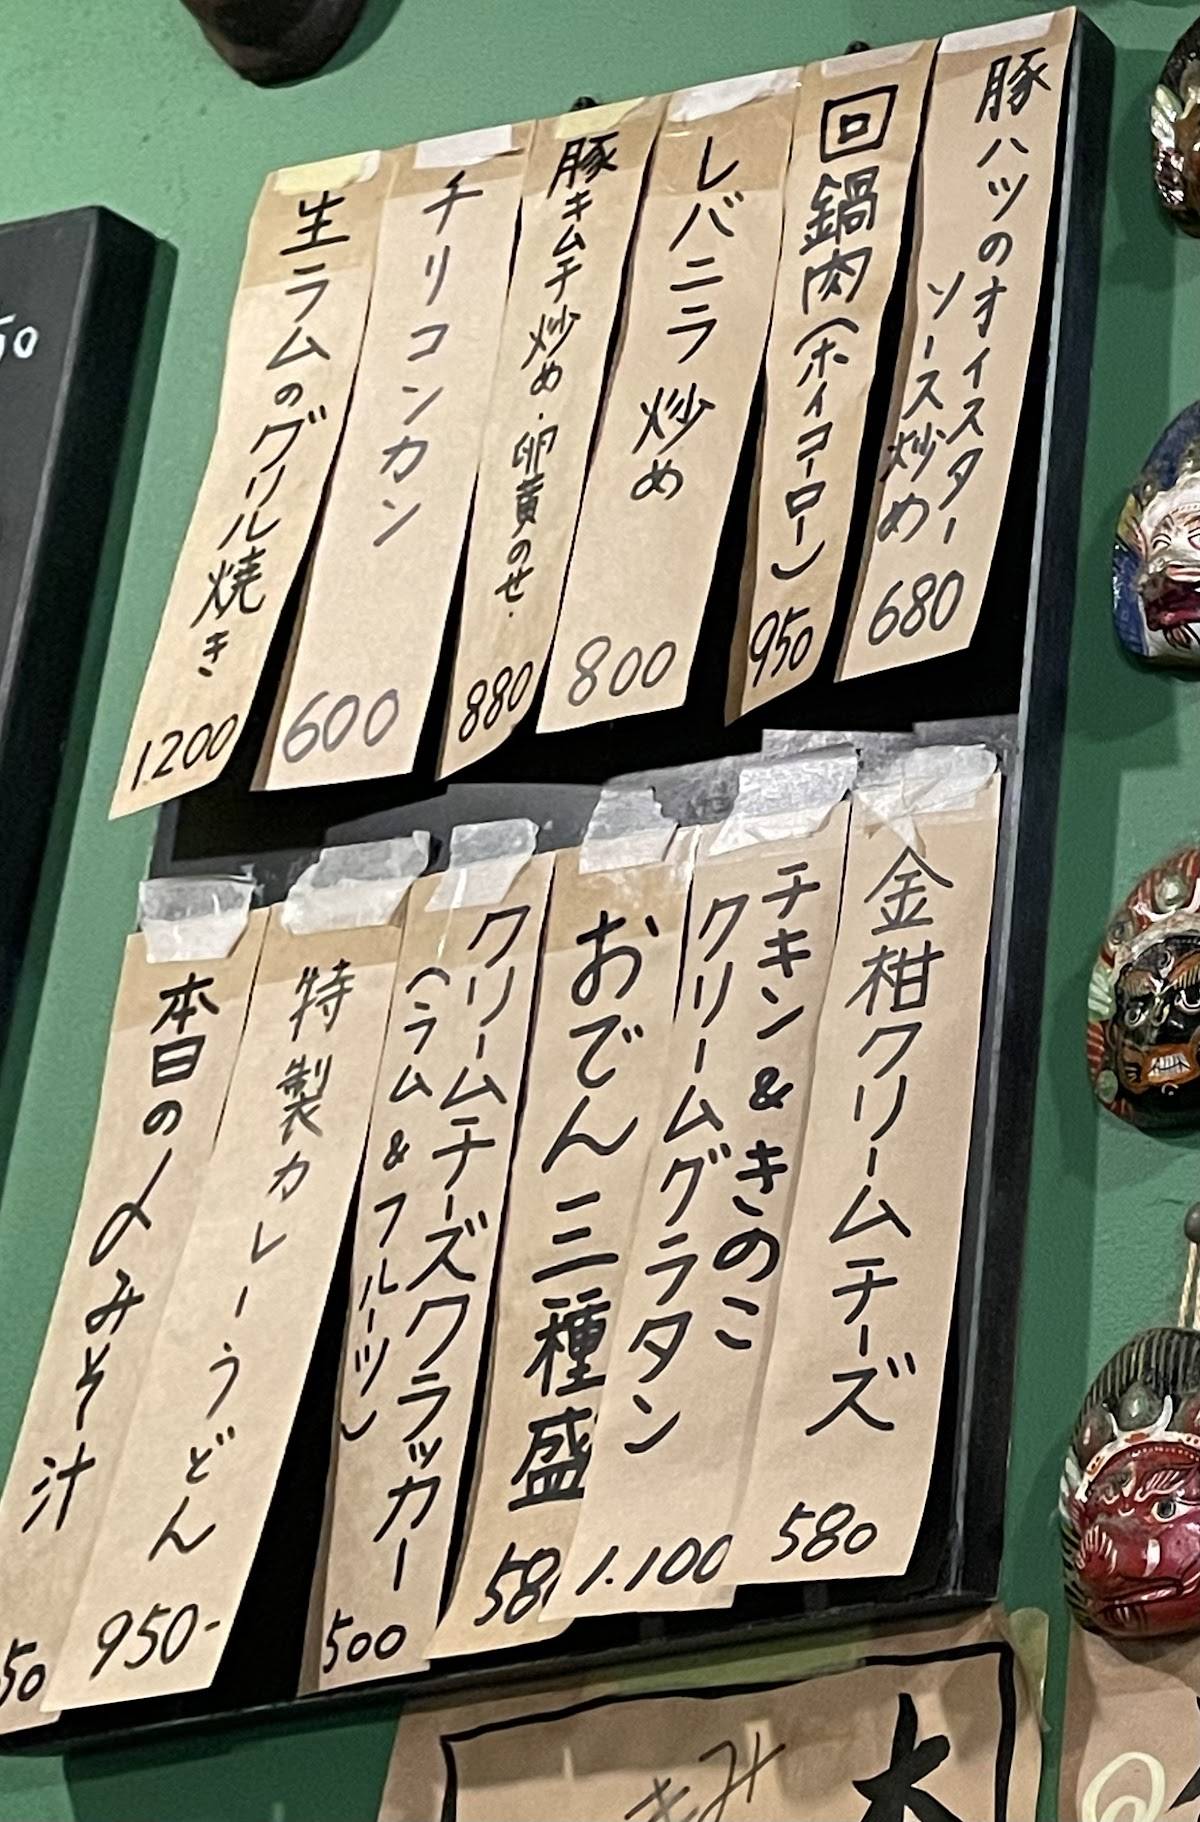 豚ハツのオイスター
ソース炒め
680
回鍋肉(ホイコーロー)
950
レバニラ炒め
800
豚キムチ炒め・卵黄のせ・
880
チリコンカン
600
生ラムのグリル焼き
1.200
金柑クリームチーズ
580
チキン&きのこ
クリームグラタン
1.100
おでん三種盛
58
クリームチーズクラッカー
(ラム&フルーツ)
500
特製カレーうどん
950-
本日の〆みそ汁
50
50